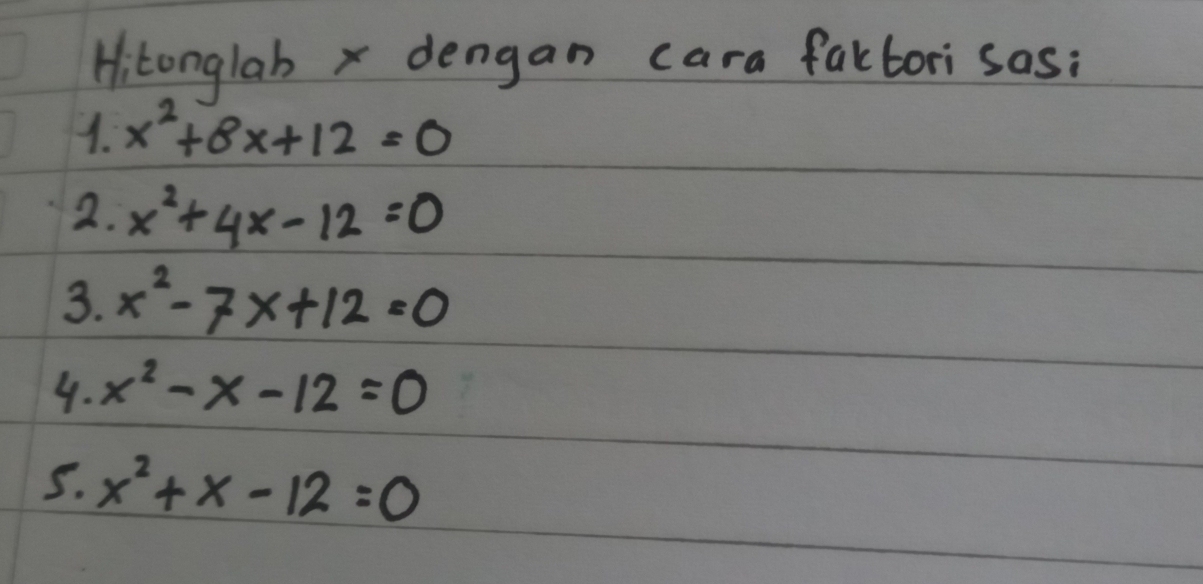 Hitunglah x dengan cara faktorisasi
1. x²+8x+12=0
2. x²+4x-12=0
3. x²-7x+12=0
4. x²-x-12=0
5. x²+x-12=0